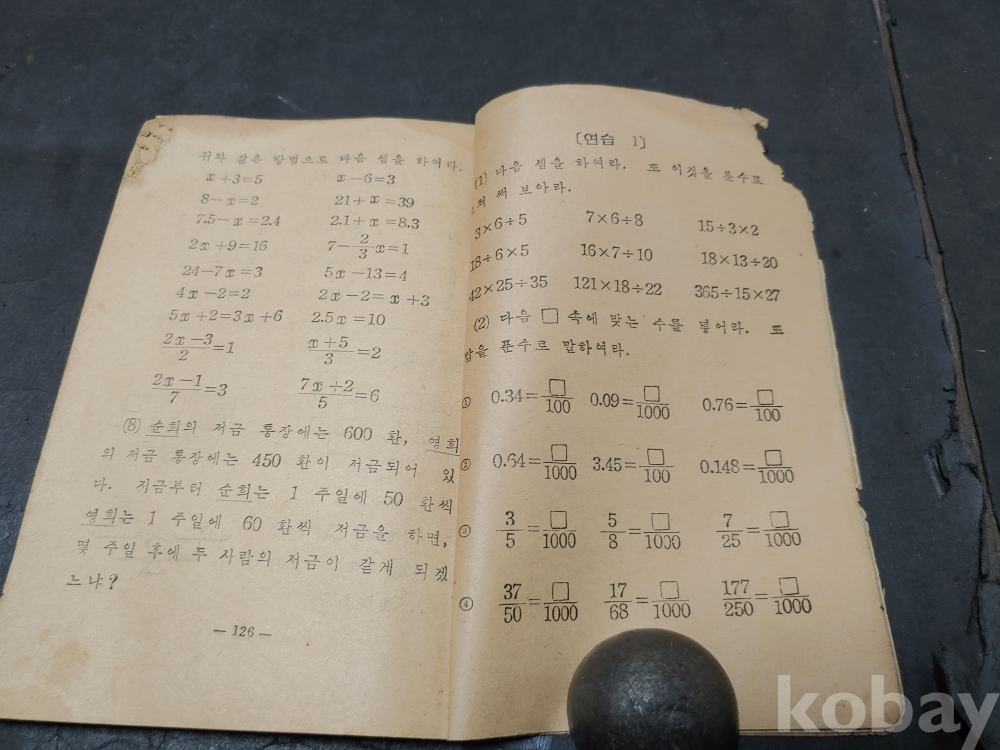 위와 같은 방법으로 다음 셈을 하여라.
x+3=5 x−6=3
8−x=2 21+x=39
7.5−x=2.4 2.1+x=8.3
2x+9=16 7−2/3x=1
24−7x=3 5x−13=4
4x−2=2 2x−2=x+3
5x+2=3x+6 2.5x=10
2x−3/2=1 x+5/3=2
2x−1/7=3 7x+2/5=6
(8) 순희의 저금 통장에는 600 환, 영희
의 저금 통장에는 450 환이 저금되어 있
다. 지금부터 순희는 1 주일에 50 환씩
영희는 1 주일에 60 환씩 저금을 하면,
몇 주일 후에 두 사람의 저금이 같게 되겠
느냐?
— 126 —
〔연습 1〕
(1) 다음 셈을 하여라. 또 이것을 푼수로
써 보아라.
3×6÷5 7×6÷8 15÷3×2
18÷6×5 16×7÷10 18×13÷20
42×25÷35 121×18÷22 365÷15×27
(2) 다음 □ 속에 맞는 수를 넣어라. 또
답을 푼수로 말하여라.
① 0.34=□/100 0.09=□/1000 0.76=□/100
② 0.64=□/1000 3.45=□/100 0.148=□/1000
③ 3/5=□/1000 5/8=□/1000 7/25=□/1000
④ 37/50=□/1000 17/68=□/1000 177/250=□/1000
kobay